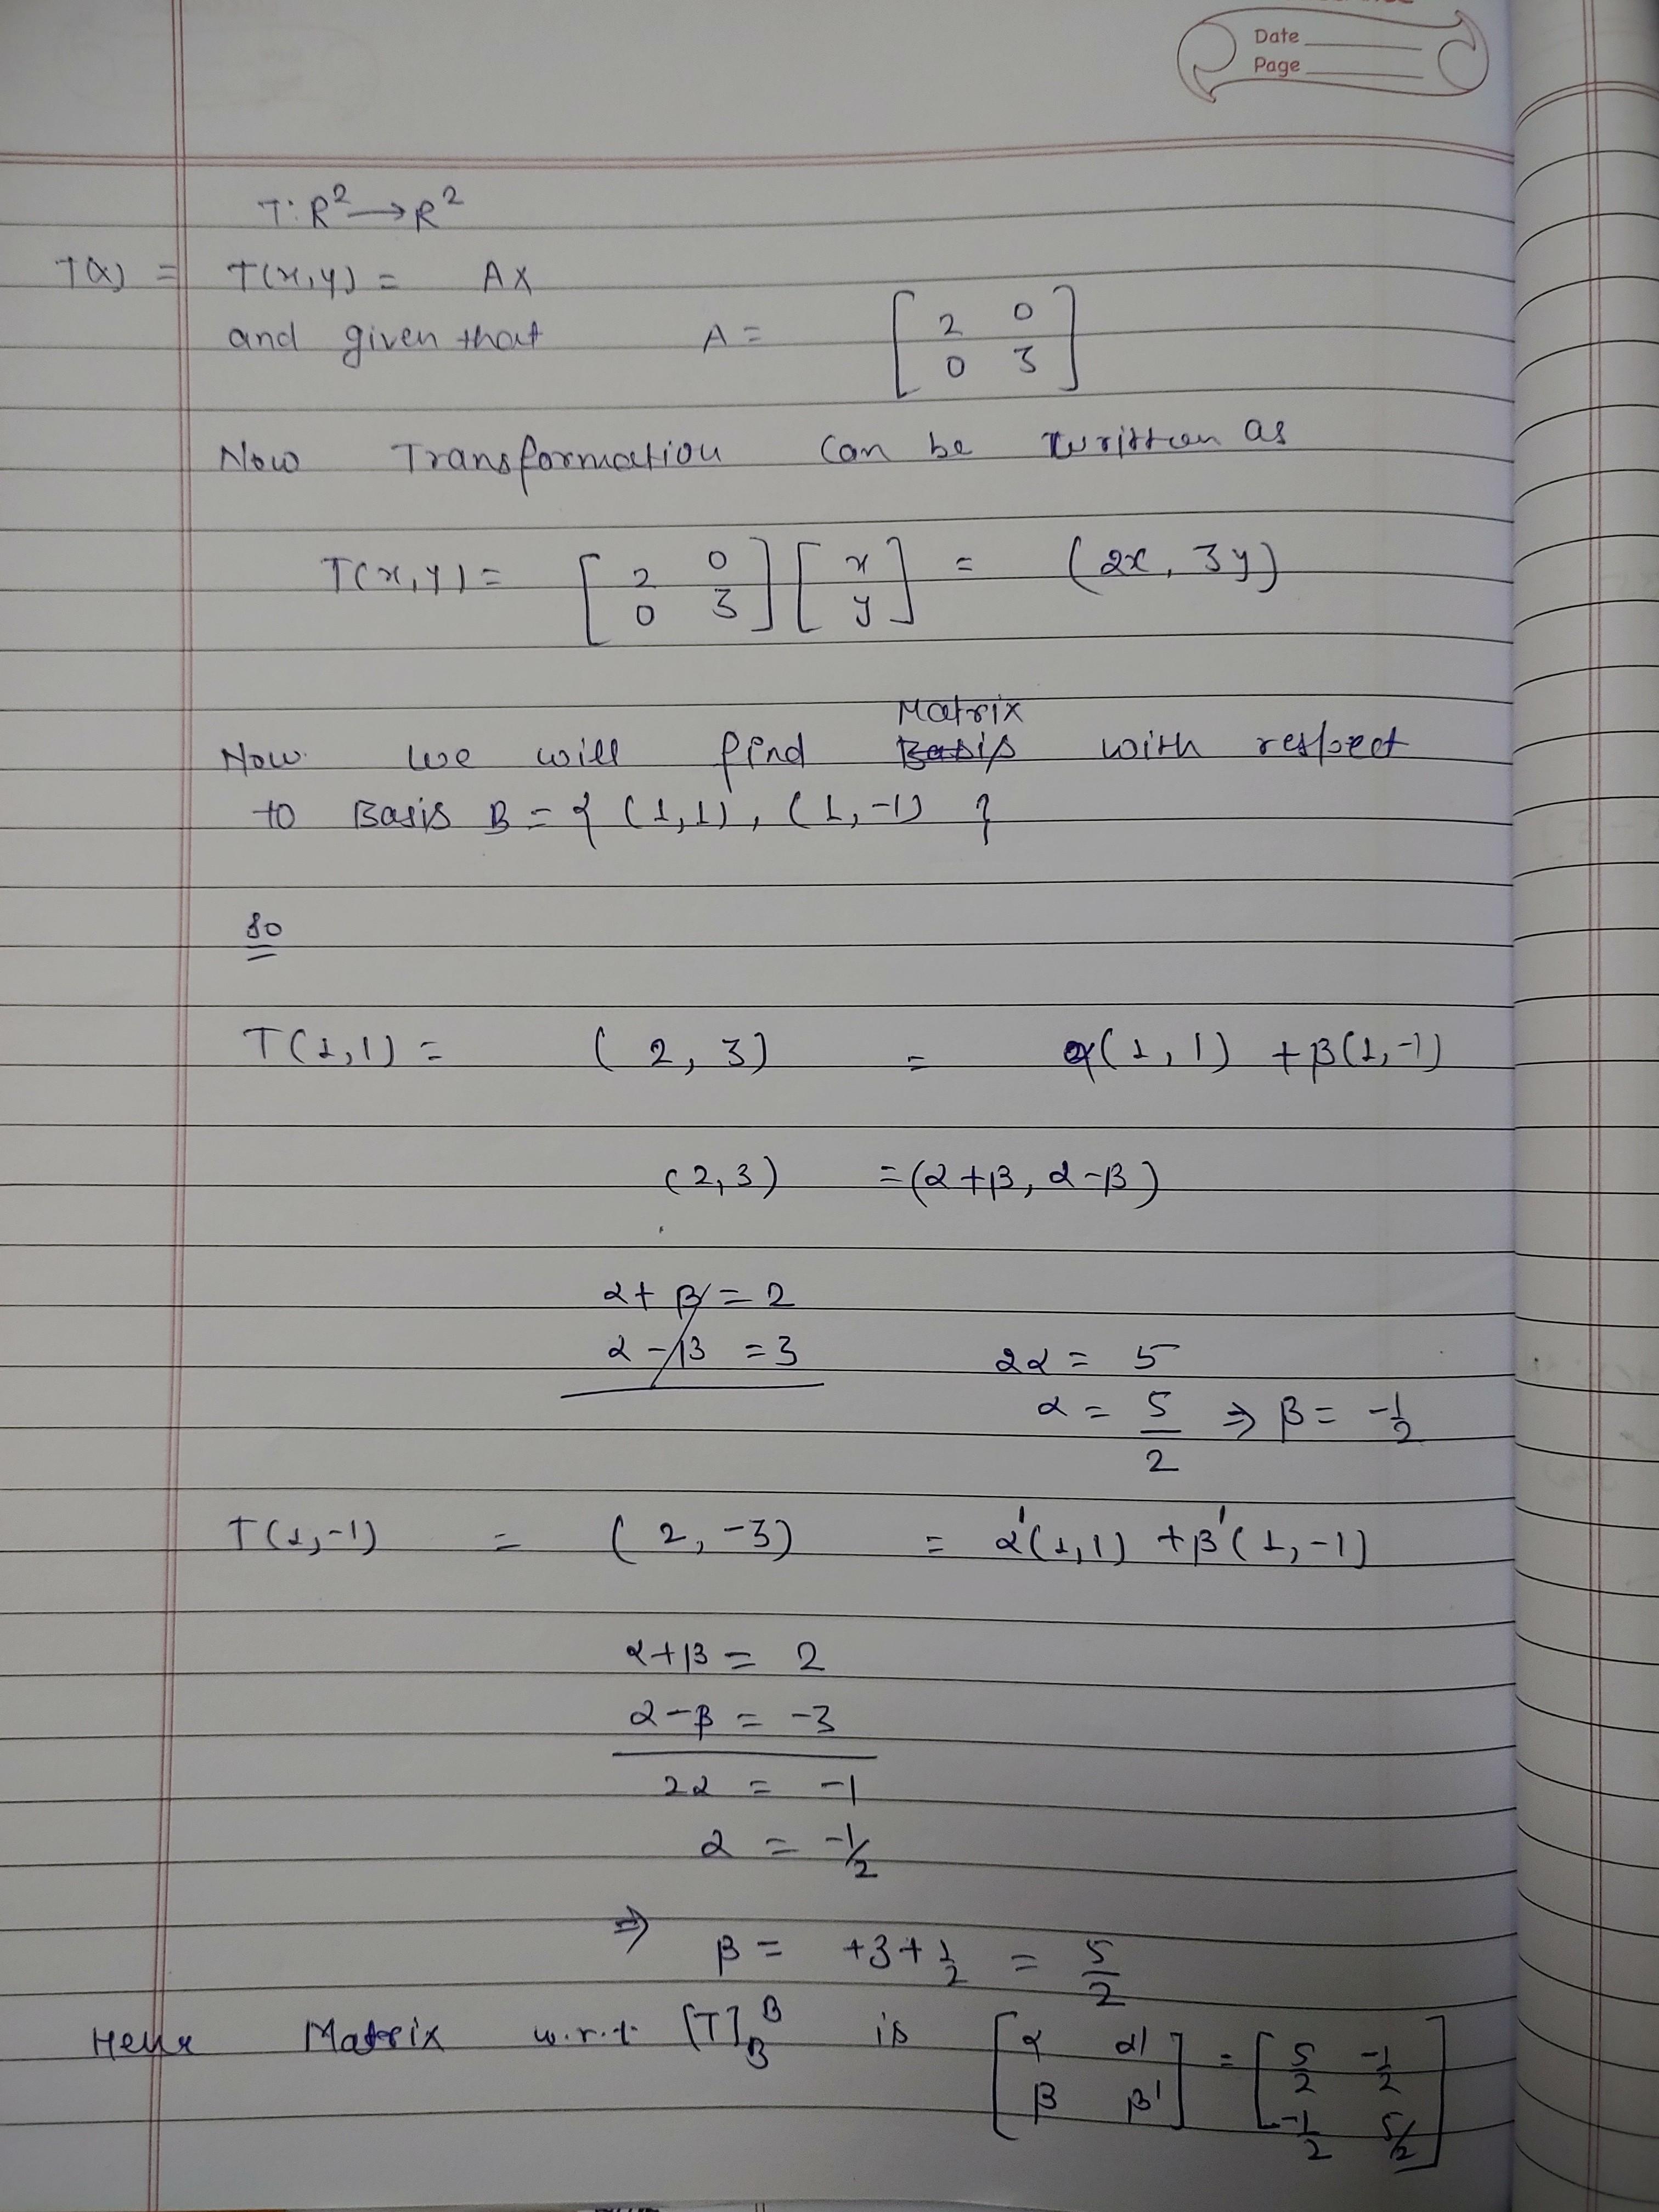 Date
Page
T: R² → R²
T(x) = T(x,y) = AX
and given that A = [2 0
0 3]
Now Transformation can be written as
T(x,y) = [2 0
0 3] [x
y] = (2x, 3y)
Matrix
Now we will find Basis with respect
to Basis B = { (1,1), (1,-1) }
so
T(1,1) = (2, 3) = α(1,1) + β(1,-1)
(2,3) = (α+β, α-β)
α + β = 2
α - β = 3
2α = 5
α = 5/2 ⇒ β = -1/2
T(1,-1) = (2, -3) = α'(1,1) + β'(1,-1)
α+β = 2
α-β = -3
2α = -1
α = -1/2
⇒ β = +3+1/2 = 5/2
Henc Matrix w.r.t. [T]_B^B is [α α'
β β'] = [5/2 -1/2
-1/2 5/2]